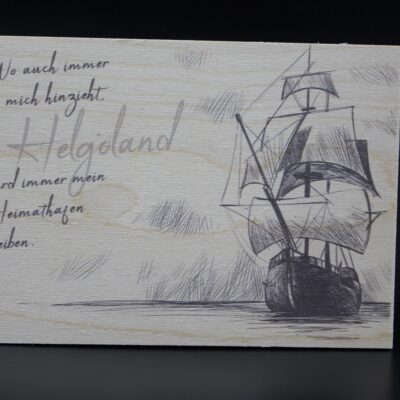 Wo auch immer
mich hinzieht.
Helgoland
rd immer mein
Heimathafen
eiben.